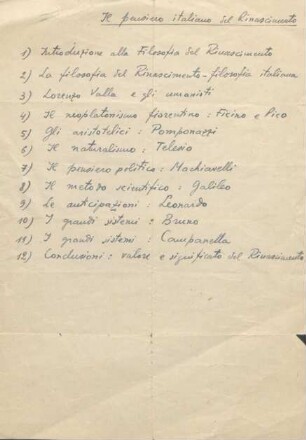 Il pensiero italiano del Rinascimento
1) Introduzione alla Filosofia del Rinascimento
2) La filosofia del Rinascimento - filosofia italiana
3) Lorenzo Valla e gli umanisti
4) Il neoplatonismo fiorentino : Ficino e Pico
5) Gli aristotelici : Pomponazzi
6) Il naturalismo : Telesio
7) Il pensiero politico : Machiavelli
8) Il metodo scientifico : Galileo
9) Le anticipazioni : Leonardo
10) I grandi sistemi : Bruno
11) I grandi sistemi : Campanella
12) Conclusioni : valore e significato del Rinascimento